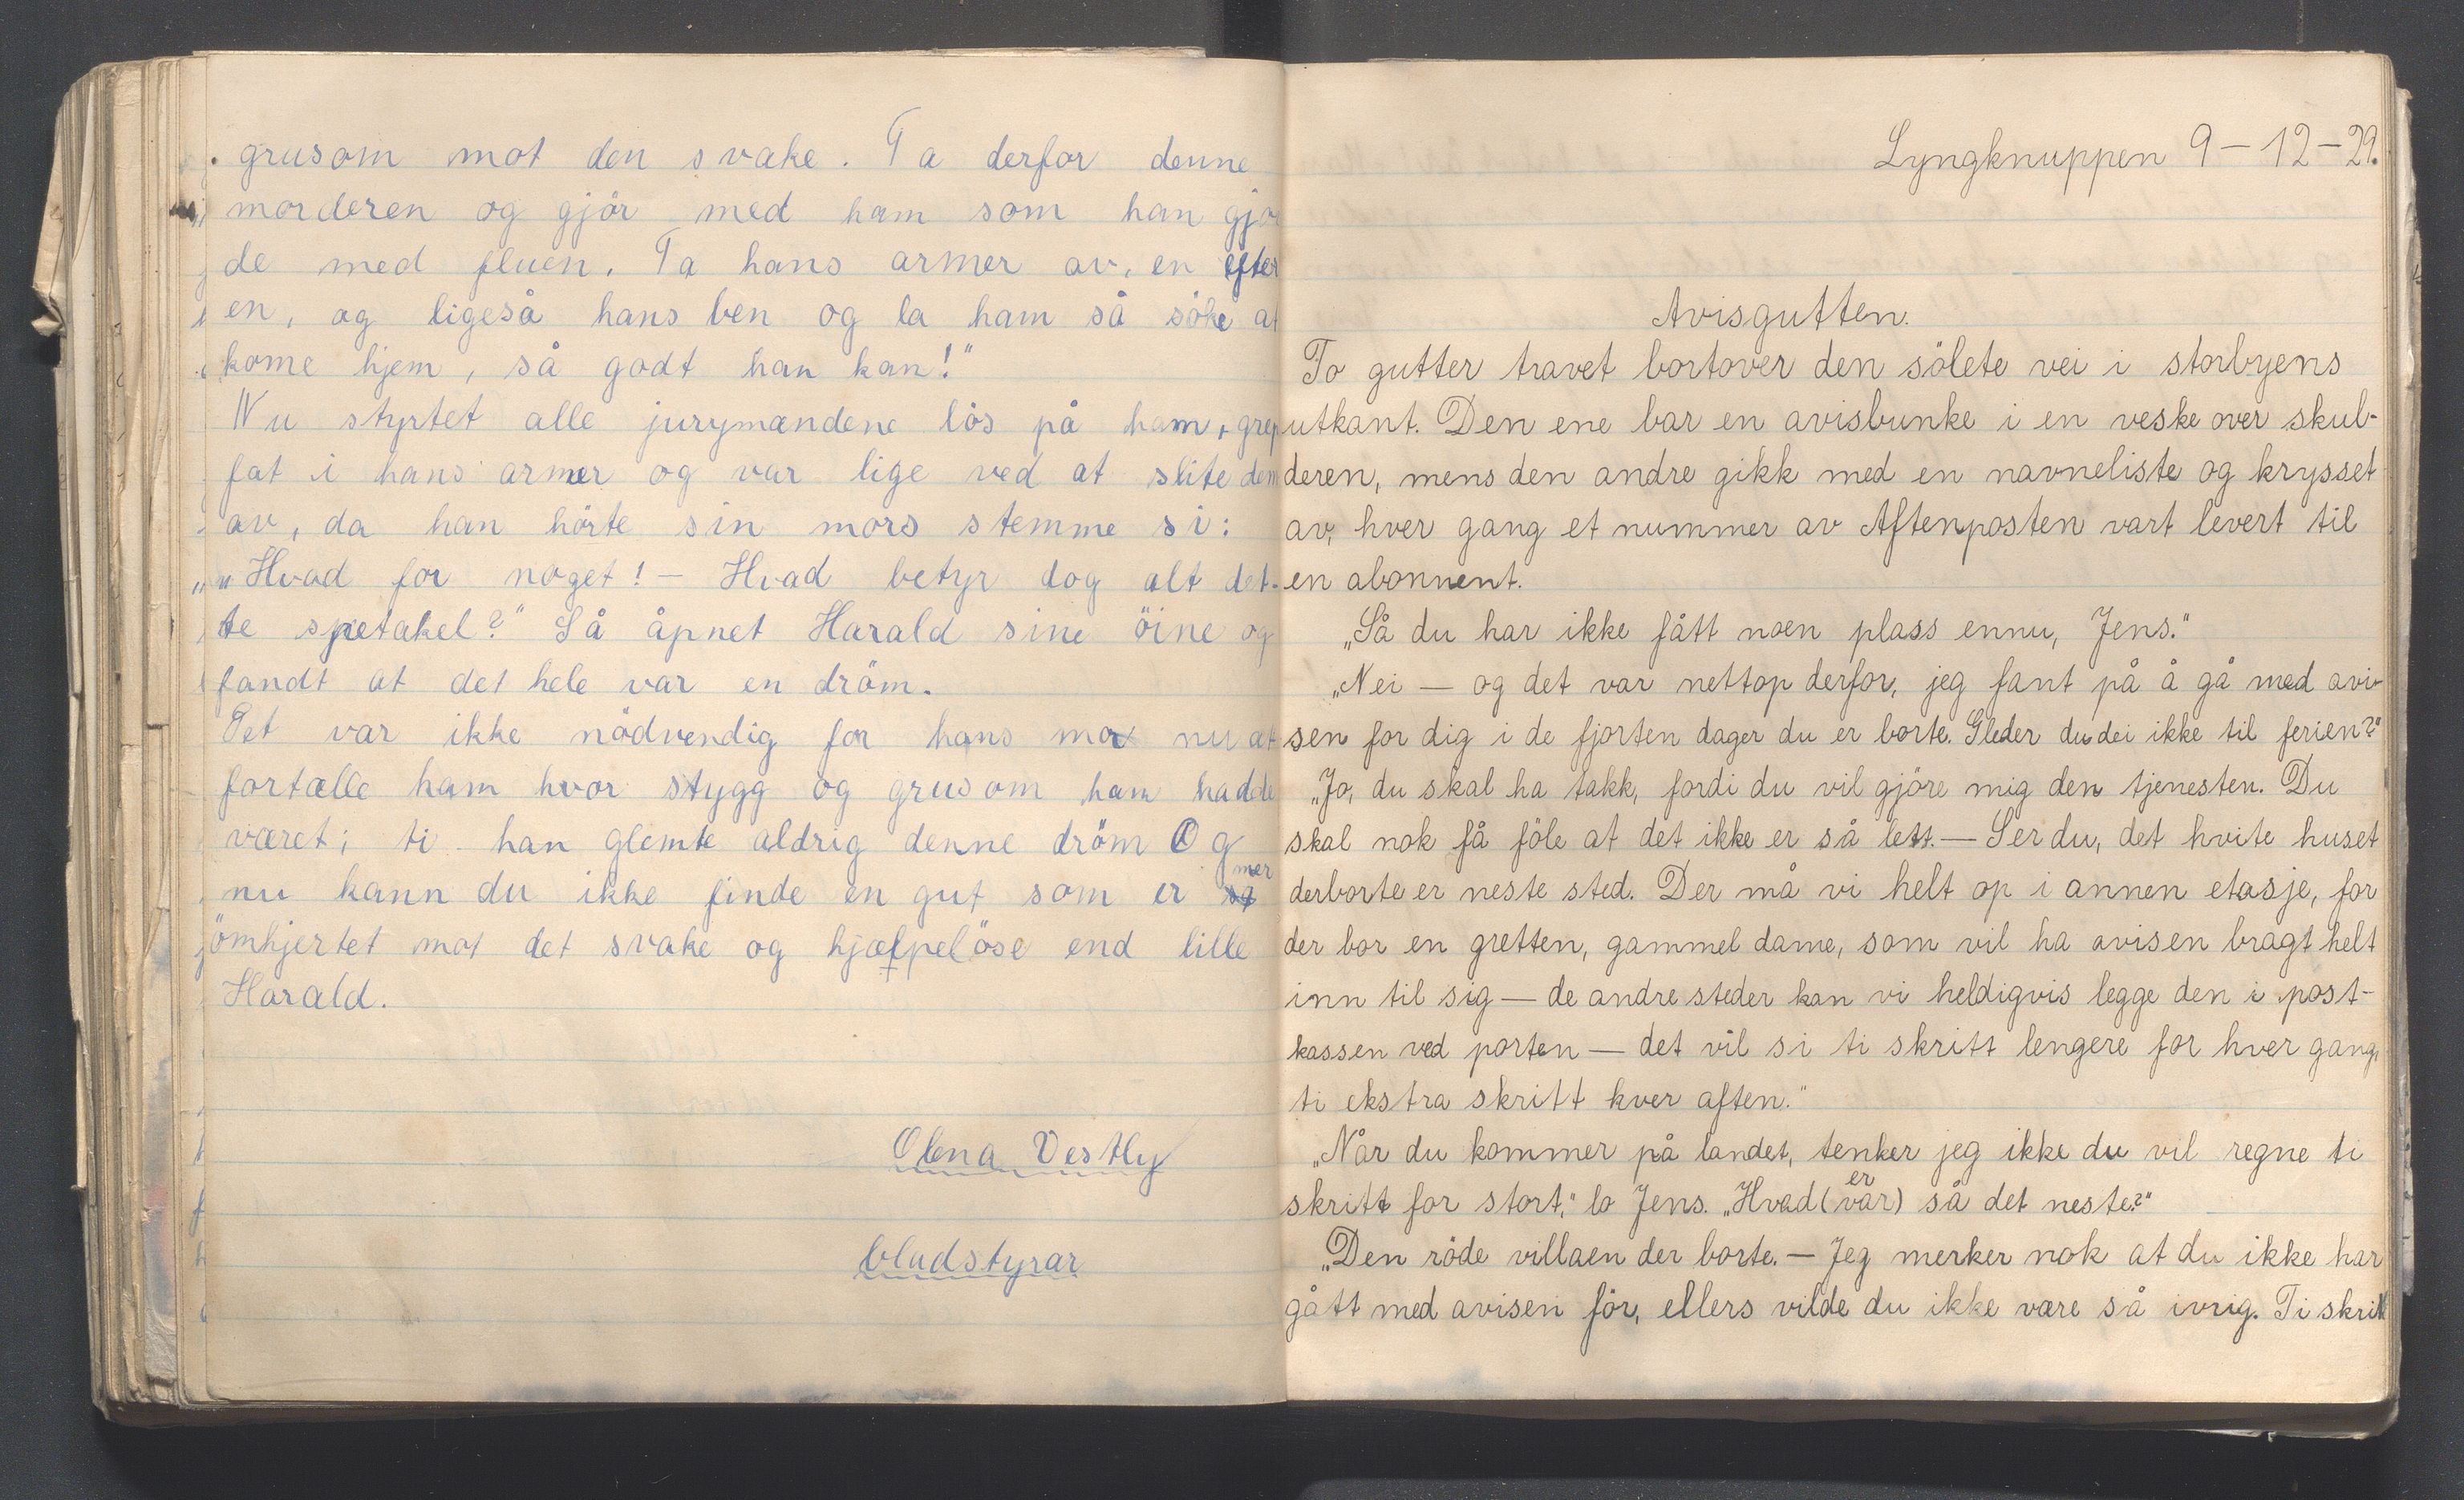 grusom mot den svake. Ta derfor denne
morderen og gjör med ham som han gjor
de med fluen. Ta hans armer av, en efter
en, og ligeså hans ben og la ham så söke at
kome hjem, så godt han kan!"
Nu styrtet alle jurymændene lös på ham, grep
fat i hans armer og var lige ved at slite dem
av, da han hörte sin mors stemme si:
„Hvad for noget! — Hvad betyr dog alt det-
te spetakel?" Så åpnet Harald sine öine og
fandt at det hele var en dröm.
Det var ikke nödvendig for hans mor nu at
fortælle ham hvor stygg og grusom ham hadde
været; ti han glemte aldrig denne dröm Og
nu kann du ikke finde en gut som er mer
ömhjertet mot det svake og hjælpelöse end lille
Harald.
Olena Vestly
bladstyrar
Lyngknuppen 9-12-29.
Avisgutten.
To gutter travet bortover den sölete vei i storbyens
utkant. Den ene bar en avisbunke i en veske over skul-
deren, mens den andre gikk med en navneliste og krysset
av, hver gang et nummer av Aftenposten vart levert til
en abonnent.
„Så du har ikke fått noen plass ennu, Jens."
„Nei — og det var nettop derfor, jeg fant på å gå med avi-
sen for dig i de fjorten dager du er borte. Gleder du dei ikke til ferien?"
„Jo, du skal ha takk, fordi du vil gjöre mig den tjenesten. Du
skal nok få föle at det ikke er så lett. — Ser du, det hvite huset
derborte er neste sted. Der må vi helt op i annen etasje, for
der bor en gretten, gammel dame, som vil ha avisen bragt helt
inn til sig — de andre steder kan vi heldigvis legge den i post-
kassen ved porten — det vil si ti skritt lengere for hver gang,
ti ekstra skritt hver aften."
„Når du kommer på landet, tenker jeg ikke du vil regne ti
skritt for stort," lo Jens. „Hvad (var) er så det neste?"
„Den röde villaen der borte. — Jeg merker nok at du ikke har
gått med avisen för, ellers vilde du ikke være så ivrig. Ti skritt